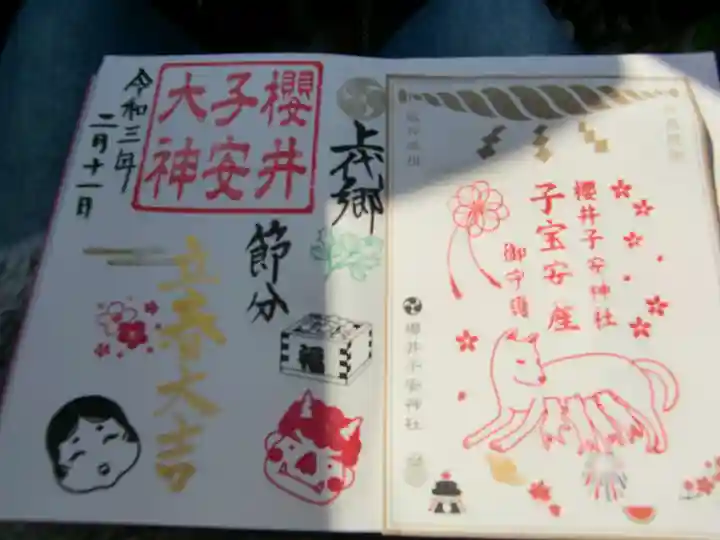 上代郷
櫻井
子安
大神
節分
福
立春大吉
令和三年
二月十一日
櫻井子安神社
子宝安産
御守護
櫻井子安神社